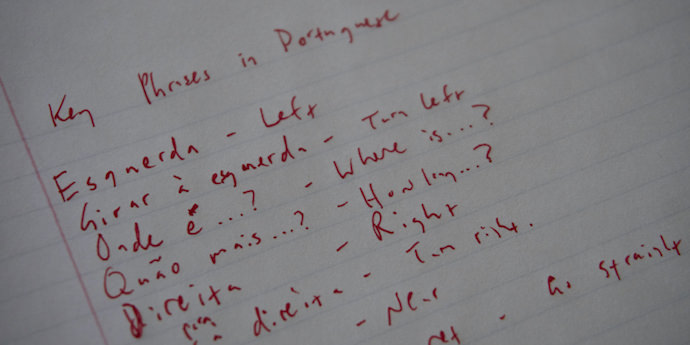 Key Phrases in Portuguese
Esquerda - Left
Girar à esquerda - Turn left
Onde é ...? - Where is...?
Quão mais...? - How long...?
Direita - Right
direita - Turn right.
- Near
- Go straight